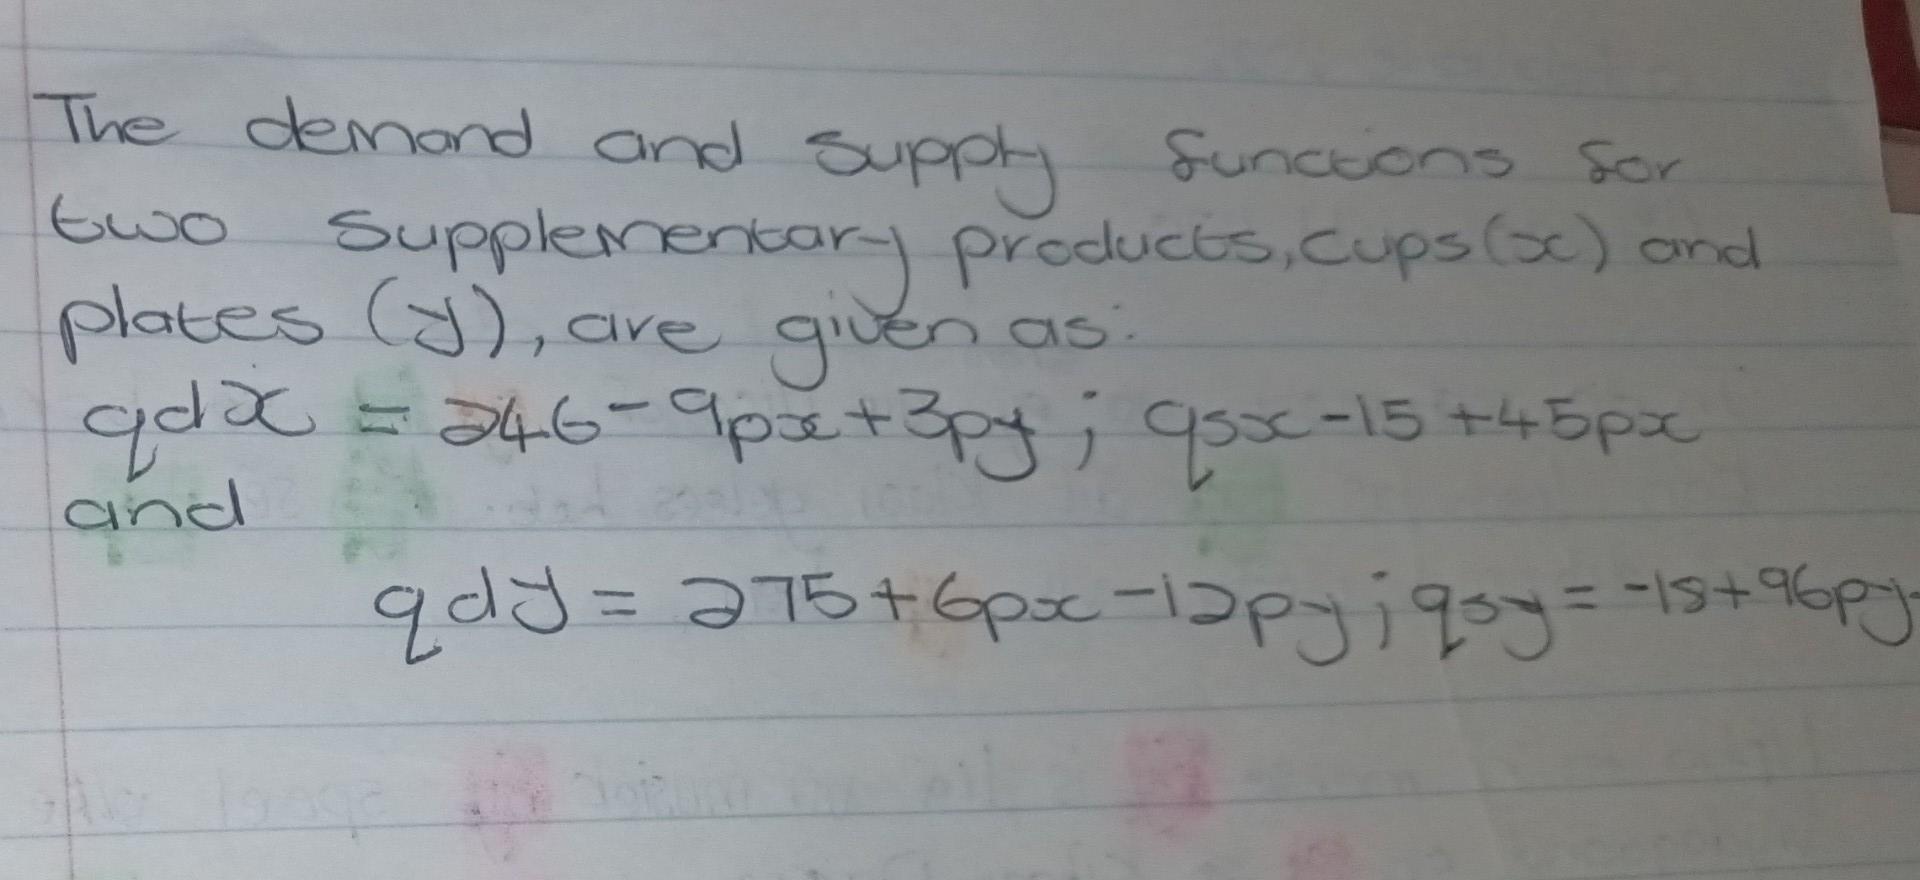 The demand and supply functions for
two supplementary products, cups (x) and
plates (y), are given as:
qdx = 246 - 9px + 3py ; qsx - 15 + 45px
and
qdy = 275 + 6px - 12py ; qsy = - 18 + 96py.